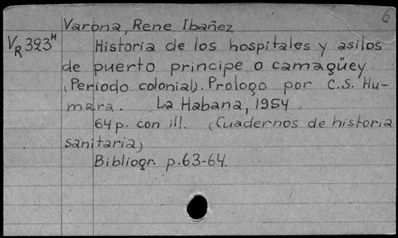 6
Varona, Rene Ibañez
VR 323H Historia de los hospitales y asilos
de puerto principe o camagüey
(Periodo colonial). Prologo por C.S. Hu-
mara. La Habana, 1954.
64 p. con ill. (Cuadernos de historia
sanitaria)
Bibliogr. p.63-64.